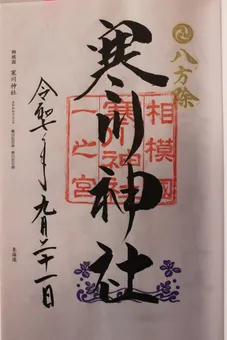 八方除
寒川神社
相模國
寒川神社
一之宮
令和二年九月二十一日
相模國 寒川神社